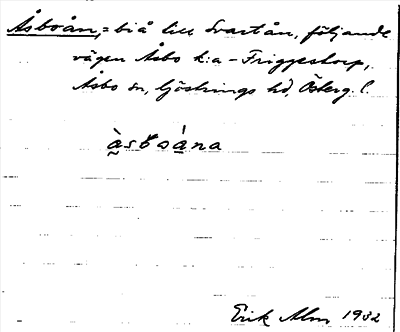 Åsboån, = biå till Svartån, följande
vägen Åsbo k:a – Friggestorp,
Åsbo sn, Göstrings hd, Österg. l.
àsboána
Erik Alm 1932